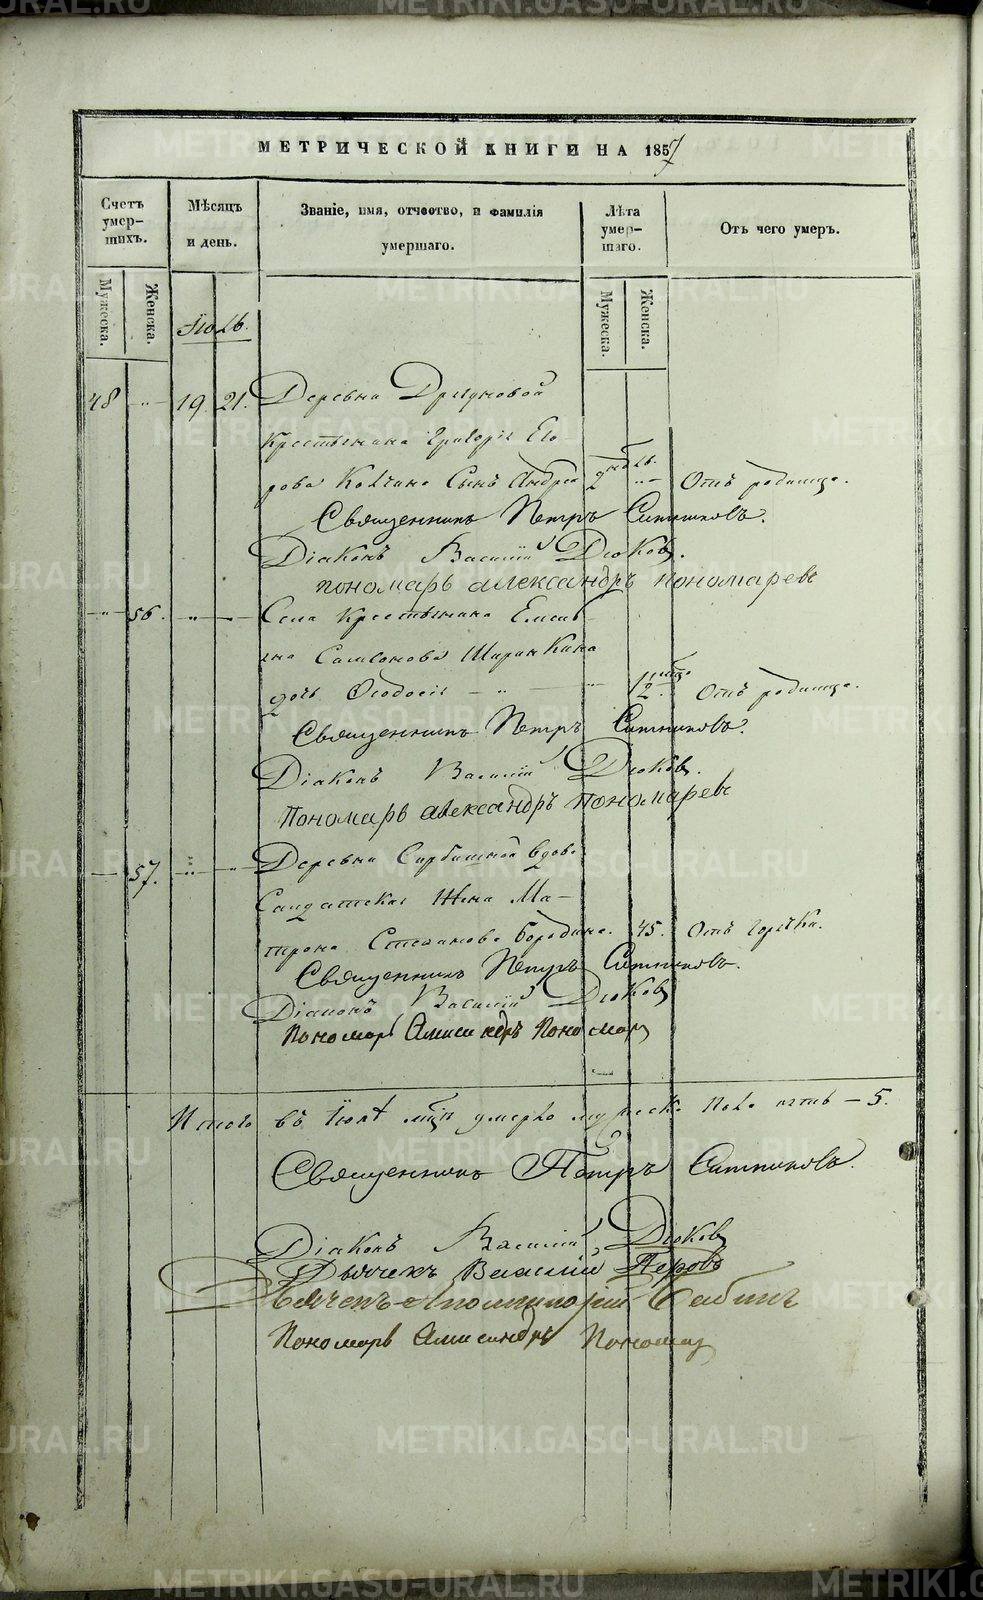 МЕТРИЧЕСКОЙ КНИГИ НА 1857
Счетъ умер-шихъ.
Мѣсяцъ и день.
Званіе, имя, отчество, и фамилія умершаго.
Лѣта умер-шаго.
Отъ чего умеръ.
Мужеска.
Женска.
Мужеска.
Женска.
Іюль.
48 19. 21. Деревни
Крестьянина Григорія Его-
рова Сынъ Андрей 2 Отъ родимца.
Священникъ Петръ Ситниковъ.
Діаконъ Василій Дюковъ.
пономарь александръ пономаревъ
56. Села Крестьянина Емель
яна Самсонова Ширинкина
дочь Ѳеодосія 1/2 Отъ родимца.
Священникъ Петръ Ситниковъ.
Діаконъ Василій Дюковъ.
Пономарь александръ пономаревъ
57. Деревни вдова
Солдатская Жена Ма-
трона Степанова Бородина. 45. Отъ горячки.
Священникъ Петръ Ситниковъ.
Діаконъ Василій Дюковъ
Пономарь Александръ Пономар
Итого въ Іюлѣ умерло мужеска пола пять – 5.
Священникъ Петръ Ситниковъ.
Діаконъ Василій Дюковъ
Дьячекъ Василій
Дьячекъ
Пономарь Александръ Пономар
METRIKI.GASO-URAL.RU